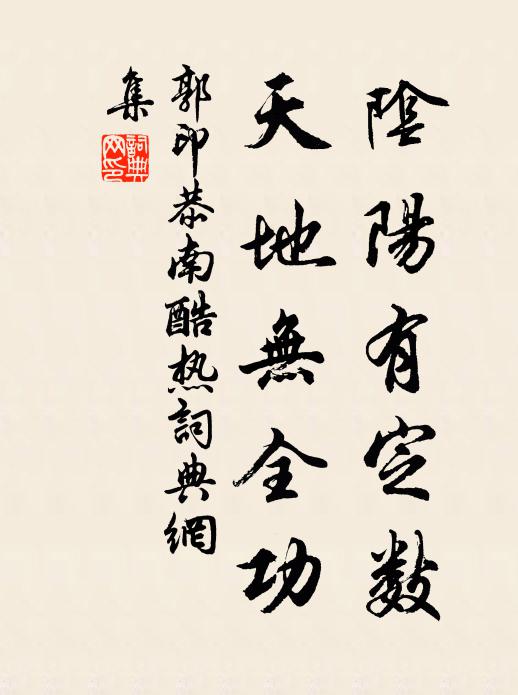 陰陽有定数
天地無全功
郭印恭南酷热詞典網
集
詞典
网